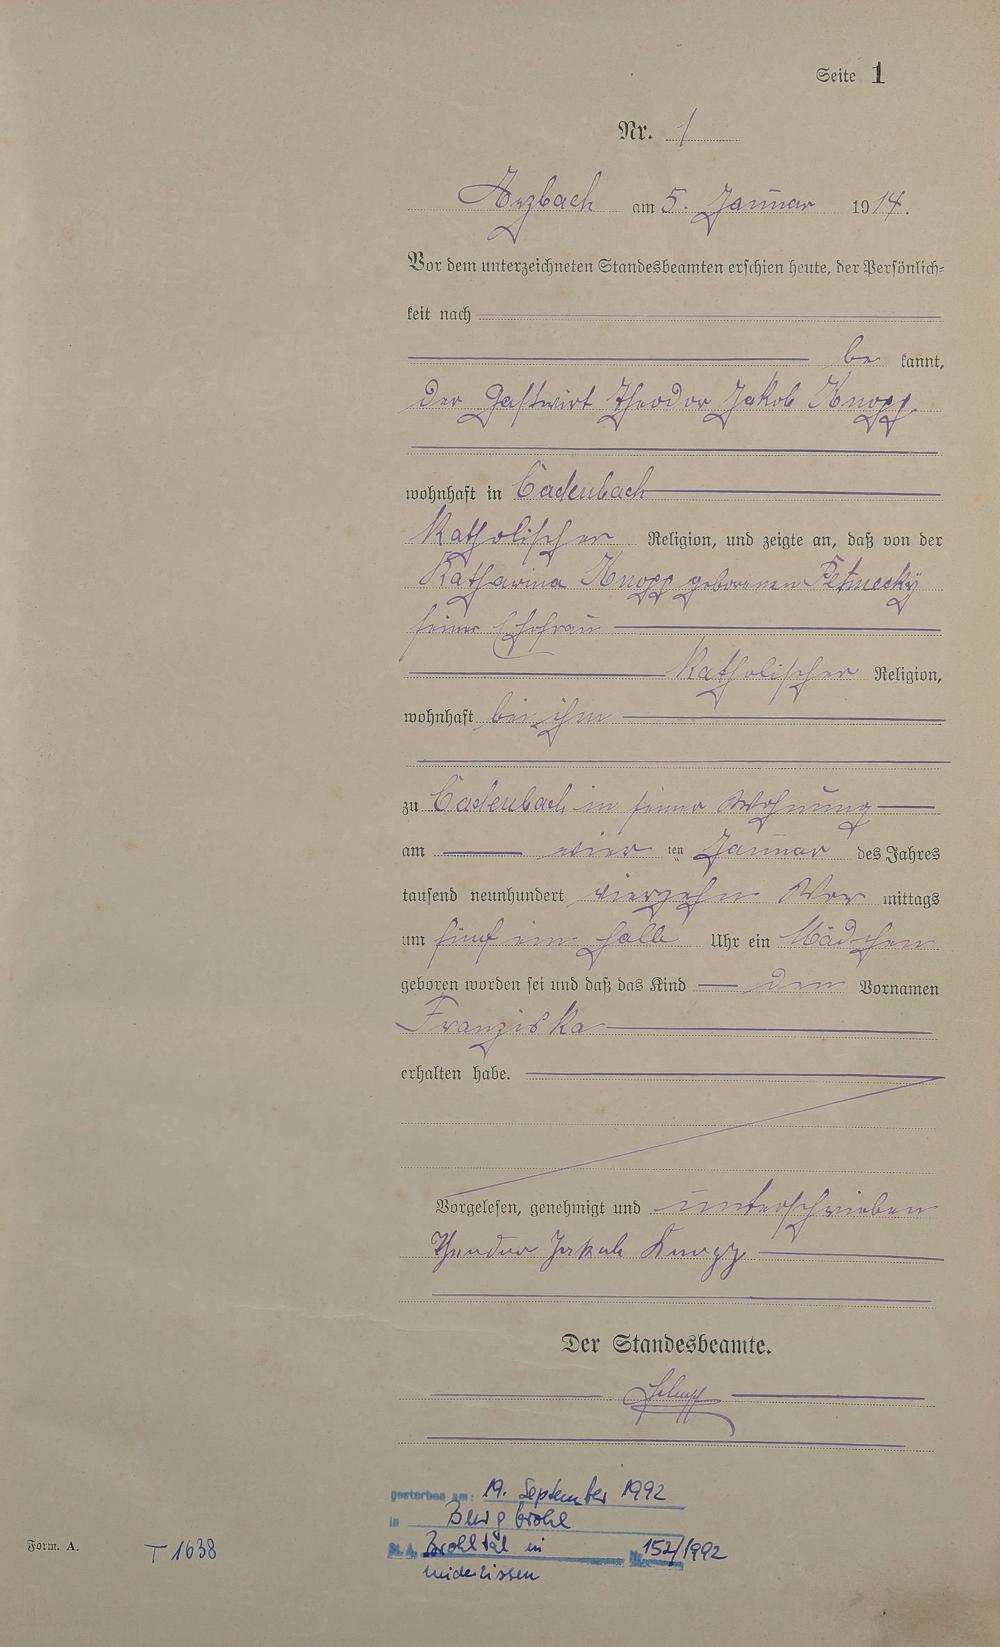 Seite 1
Nr. 1
Arzbach am 5. Januar 1914.
Vor dem unterzeichneten Standesbeamten erschien heute, der Persönlich-
keit nach
be kannt,
der Gastwirt Theodor Jakob Knopp
wohnhaft in Cadenbach
Katholischer Religion, und zeigte an, daß von der
Katharina Knopp geborenen
seiner Ehefrau
Katholischer Religion,
wohnhaft bei ihm
zu Cadenbach in seiner Wohnung
am vier ten Januar des Jahres
tausend neunhundert vierzehn Vor mittags
um fünf ein halb Uhr ein Mädchen
geboren worden sei und daß das Kind den Vornamen
Franziska
erhalten habe.
Vorgelesen, genehmigt und unterschrieben
Theodor Jakob Knopp
Der Standesbeamte.
gestorben am: 19. September 1992
in Burgbrohl
St. A. Brohltal in Nr. 152/1992
Niederzissen
Form. A. T 1638